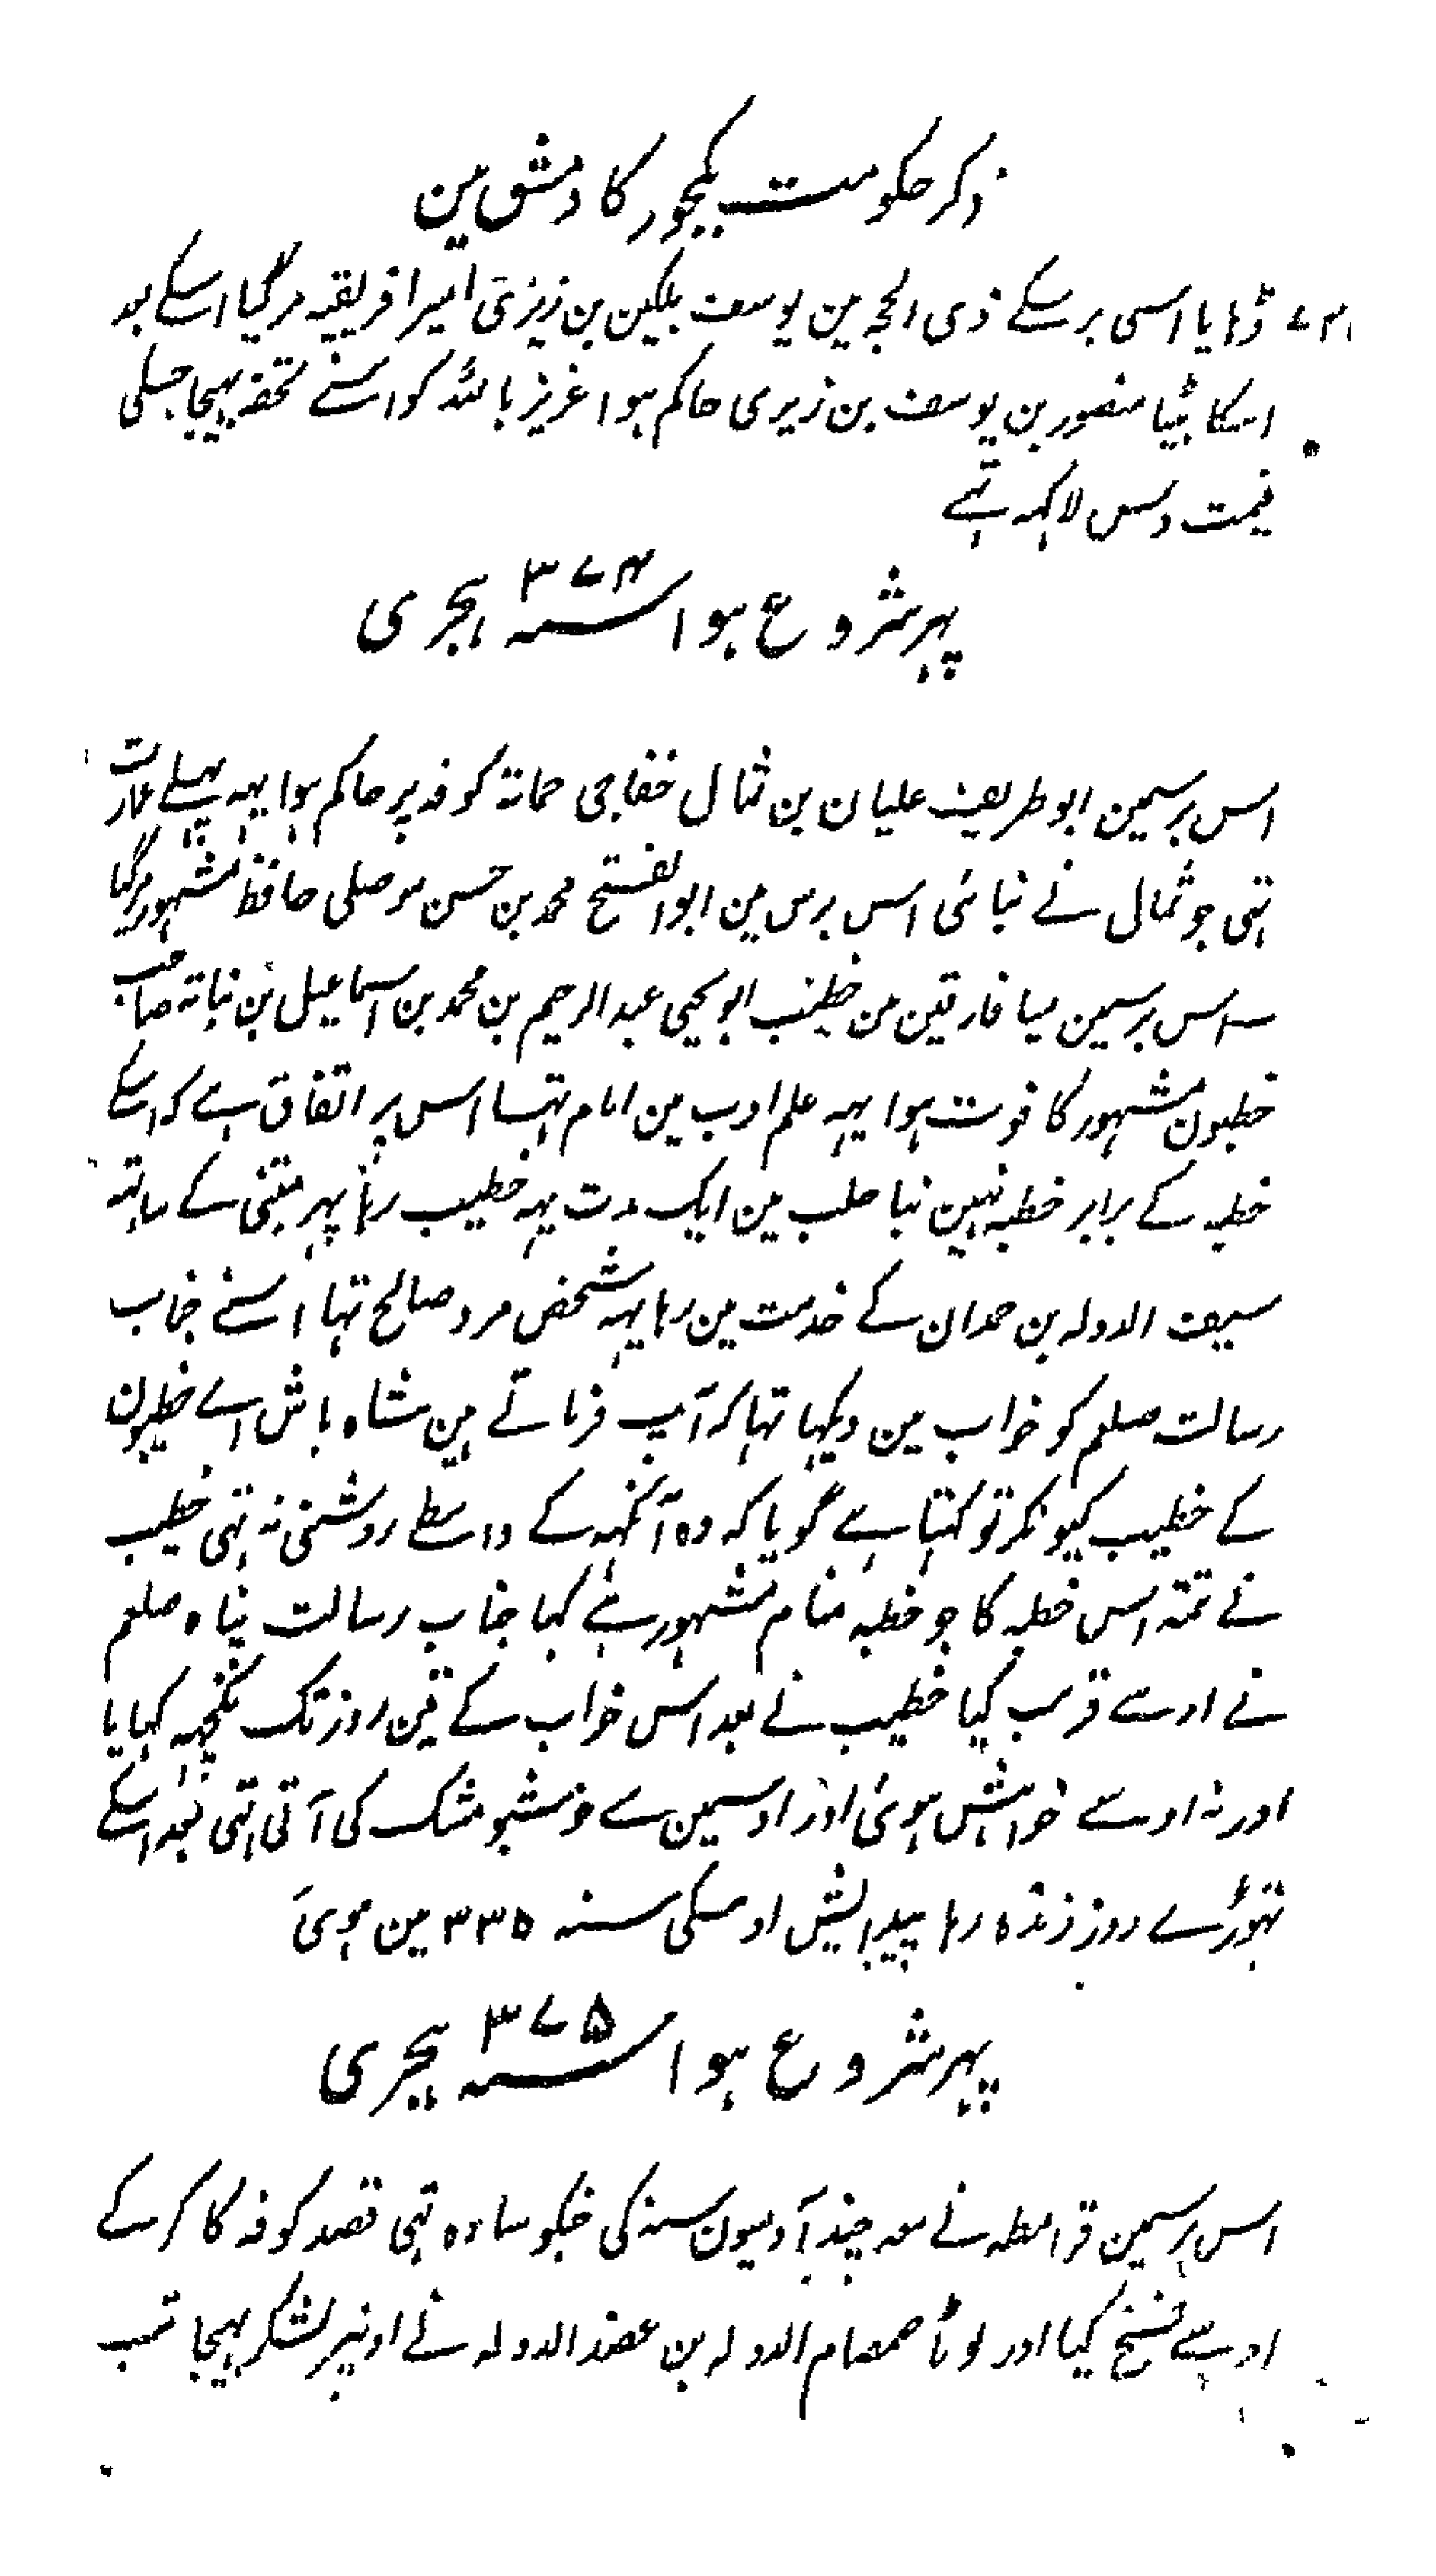 ذکر حکومت بکجور کا دمشق مین
ڈہایا اسی برسکے ذی الحجہ مین یوسف بلکین بن زیری امیر افریقیہ مرگیا اسکے بعد
اسکا بیٹا منصور بن یوسف بن زیری حاکم ہوا عزیز باللہ کو اسنے تحفہ بہیجا جسکی
قیمت دس لاکہہ تہے
پہر شروع ہوا سنہ ۳۷۴ ہجری
اس برسمین ابو طریف علیان بن ثمال خفاجی حماتہ کوفہ پر حاکم ہوا یہہ پہلے عمارت
تہی جو ثمال نے بنائی اس برس مین ابو الفتح محمد بن حسن موصلی حافظ مشہور مرگیا
اس برسمین میا فارقین من خطیب ابو یحیی عبد الرحیم بن محمد بن اسماعیل بن نباتہ صاحب
خطبون مشہور کا فوت ہوا یہہ علم ادب مین امام تہا اس پر اتفاق ہے کہ اسکے
خطبہ کے برابر خطبہ نہین بنا حلب مین ایک مدت یہہ خطیب رہا پہر متنبی کے ساتہہ
سیف الدولہ بن حمدان کے خدمت مین رہا یہہ شخص مرد صالح تہا اسنے جناب
رسالت صلعم کو خواب مین دیکہا تہا کہ آپ فرماتے ہین شاہ باش اے خطیبون
کے خطیب کیونکر تو کہتا ہے گویا کہ وہ آنکہہ کے واسطے روشنی نہ تہی خطیب
نے تتمہ اس خطبہ کا جو خطبہ منام مشہور ہے کہا جناب رسالت پناہ صلعم
نے اوسے قریب کیا خطیب نے بعد اس خواب کے تین روز تک نکچہہ کہایا
اور نہ اوسے خواہش ہوئی اور اوسمین سے خوشبو مشک کی آتی تہی بعد اسکے
تہوڑے روز زندہ رہا پیدایش اوسکی سنہ ۳۳۵ مین ہوی
پہر شروع ہوا سنہ ۳۷۵ ہجری
اس برسمین قرامطہ نے معہ چند آدمیون کی جنکو سادہ تہی قصد کوفہ کا کر کے
اوسے فتح کیا اور لوٹا صمصام الدولہ بن عضد الدولہ نے اونپر لشکر بہیجا تب